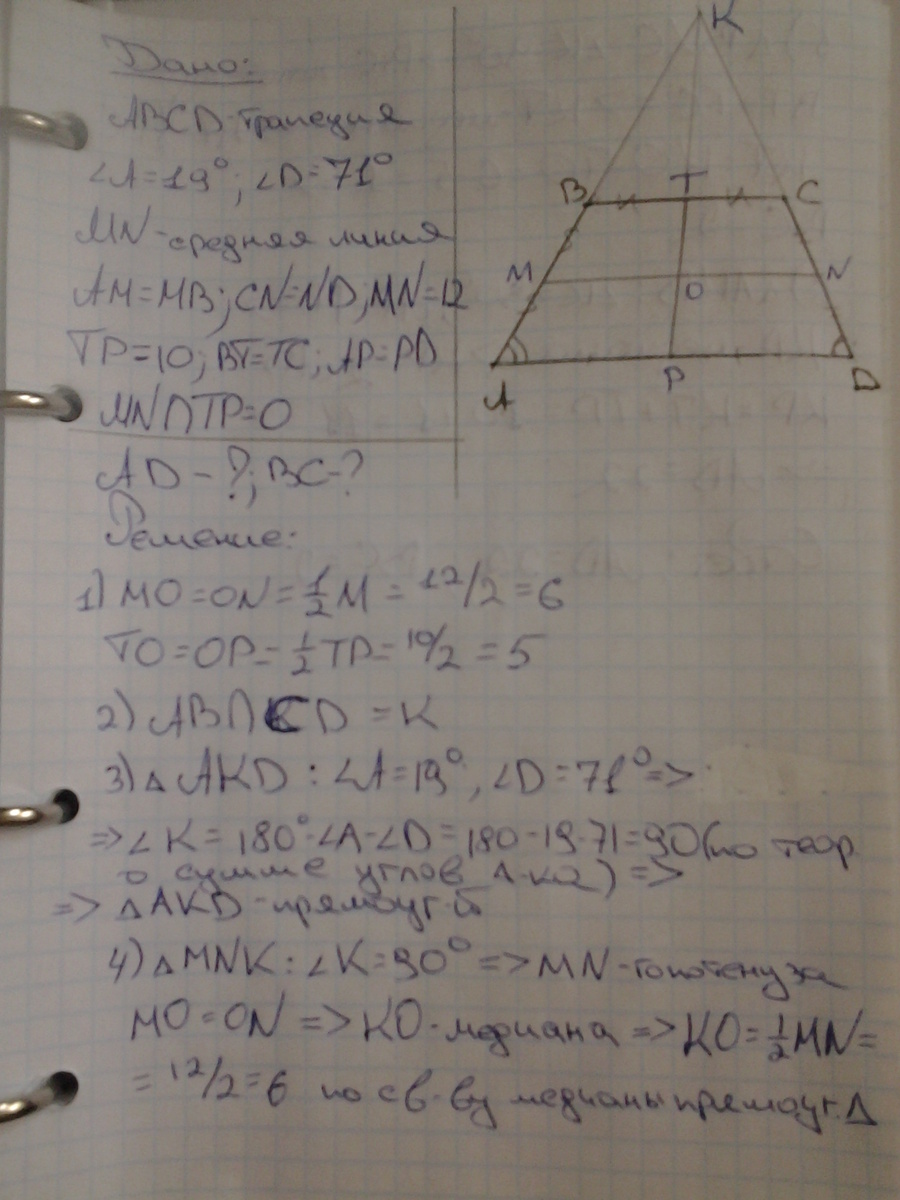 Дано:
ABCD-трапеция
∠A=19°; ∠D=71°
MN-средняя линия
AM=MB; CN=ND, MN=12
TP=10; BT=TC; AP=PD
MN∩TP=O
AD-?; BC-?
K
B T C
M O N
A P D
Решение:
1) MO=ON=1/2M = 12/2=6
TO=OP=1/2TP=10/2=5
2) AB∩CD =K
3) △AKD: ∠A=19°, ∠D=71° =>
=> ∠K=180°-∠A-∠D=180-19-71=90(по теор.
о сумме углов △-ка) =>
=> △AKD-прямоуг-й
4) △MNK: ∠K=90° => MN-гипотенуза
MO=ON => KO-медиана => KO=1/2MN=
= 12/2=6 по св-ву медианы прямоуг. △